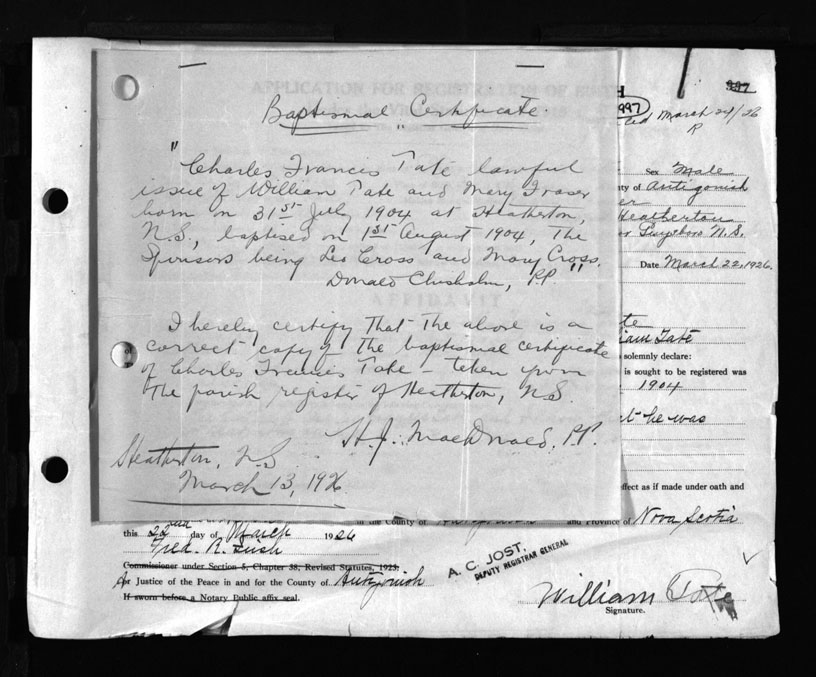 APPLICATION FOR REGISTRATION OF BIRTH
997
997
March 24/26
Baptismal Certificate
" Charles Francis Tate lawful
issue of William Tate and Mary Fraser
born on 31st July 1904 at Heatherton,
N.S., baptised on 1st August 1904, The
Sponsors being Leo Cross and Mary Cross. "
Donald Chisholm, P.P.
AFFIDAVIT
I hereby certify that the above is a
correct copy of the baptismal certificate
of Charles Francis Tate – taken from
the parish register of Heatherton, N.S.
H.J. MacDonald, P.P.
Heatherton, N.S
March 13, 1926
Sex Male
ty of Antigonish
Heatherton
Guysboro N.S.
Date March 22, 1926.
liam Tate
solemnly declare:
is sought to be registered was
1904
he was
ffect as if made under oath and
in the County of and Province of Nova Scotia
this 22nd day of March 1926
Fred. R.
Commissioner under Section 5, Chapter 38, Revised Statutes, 1923.
or Justice of the Peace in and for the County of Antigonish
If sworn before a Notary Public affix seal.
A. C. JOST,
DEPUTY REGISTRAR GENERAL
William Tate
Signature.